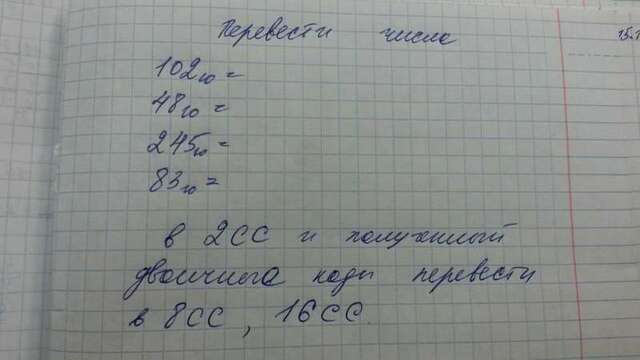 Перевести числа
15.1
102₁₀ =
48₁₀ =
245₁₀ =
83₁₀ =
в 2СС и полученный
двоичного коды перевести
в 8СС, 16СС.